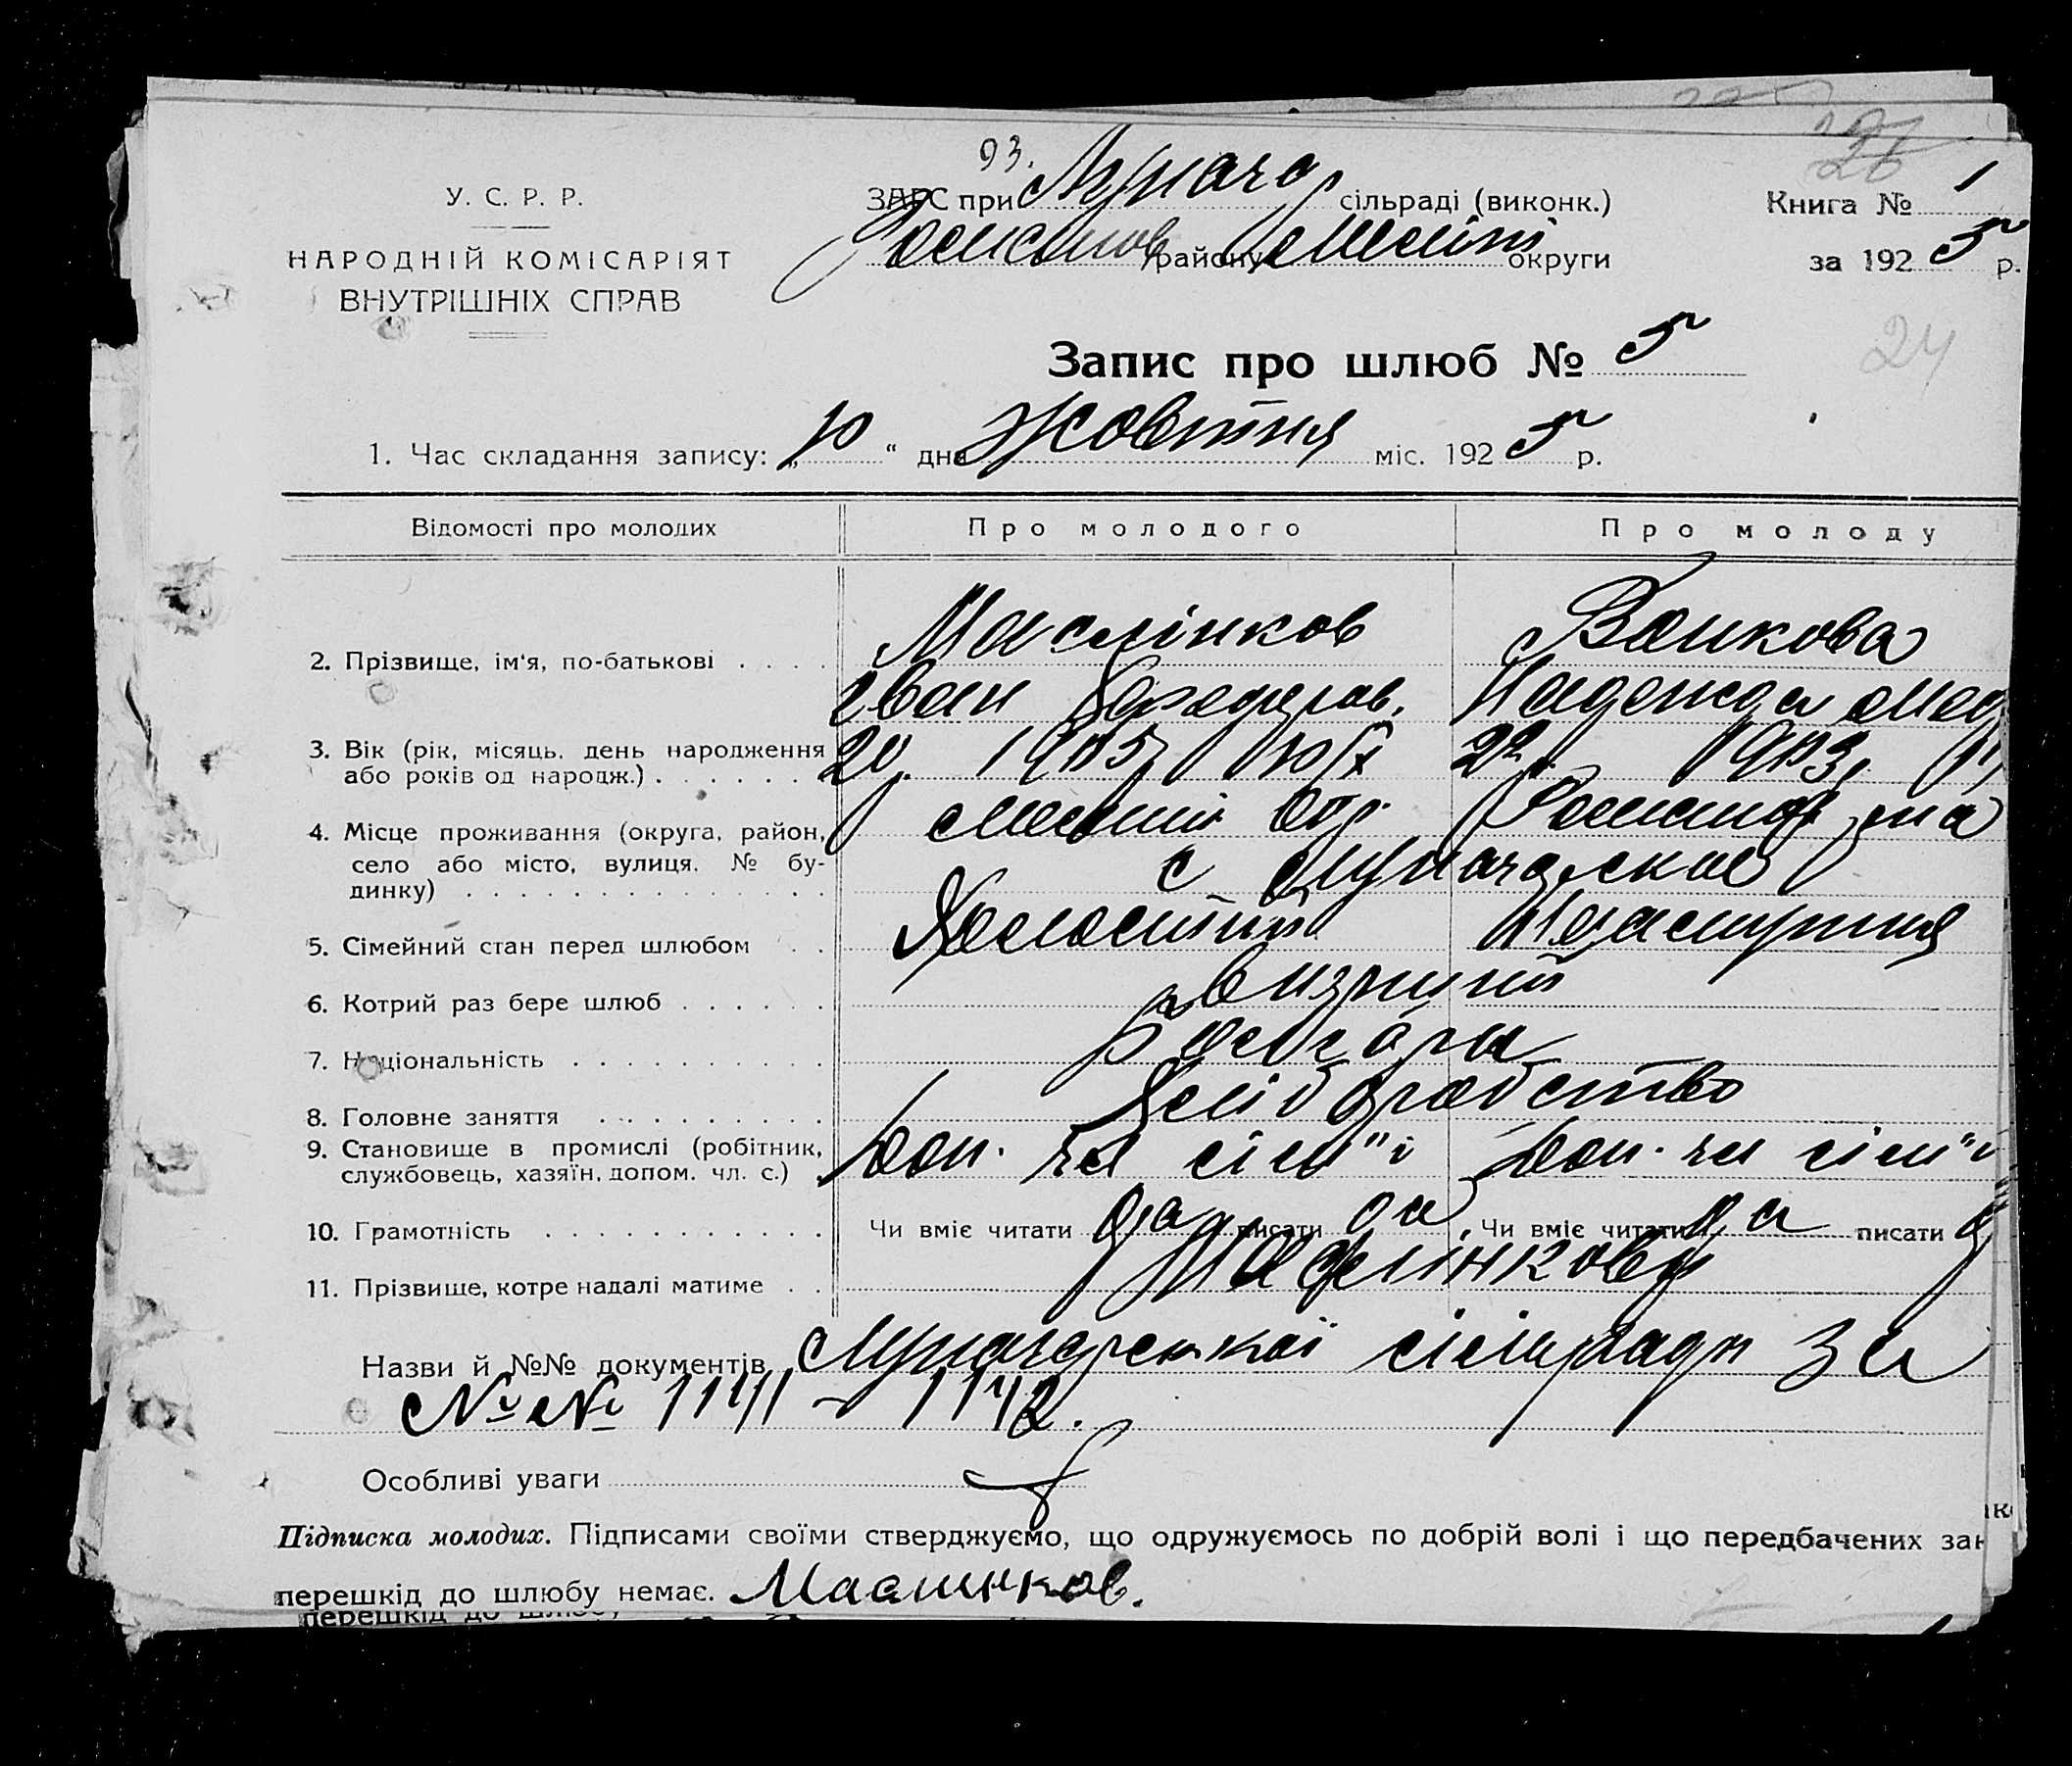 93.
26
У. С. Р. Р.
НАРОДНІЙ КОМІСАРІЯТ
ВНУТРІШНІХ СПРАВ
ЗАГС при Лунача сільраді (виконк.)
Романов району Меліт округи
Книга № 1
за 192 5 р.
Запис про шлюб № 5
24
1. Час складання запису: „ 10 “ дна Жовтня міс. 192 5 р.
Відомості про молодих Про молодого Про молоду
2. Прізвище, ім'я, по-батькові . . . . Маслінков Волкова
Іван Надежда
3. Вік (рік, місяць, день народження 20. 1905 10/X 22 1903,
або років од народж.) . . . . . . .
4. Місце проживання (округа, район, Меліт окр. Романов р на
село або місто, вулиця, № бу- с
динку) . . . . . . . . . . . . .
5. Сімейний стан перед шлюбом . . Холостий
6. Котрий раз бере шлюб . . . . . .
7. Національність . . . . . . . . . . Болгары
8. Головне заняття . . . . . . . . . Хліборобство
9. Становище в промислі (робітник, Доп. чл сім"ї Доп. чл сім"ї
службовець, хазяїн, допом. чл. с.)
10. Грамотність . . . . . . . . . . . Чи вміє читати да писати да Чи вміє читати да писати
11. Прізвище, котре надалі матиме . . Маслінкови
Назви й №№ документів Луначарської сільради за
№№ 1141 - 1142.
Особливі уваги
Підписка молодих. Підписами своїми стверджуємо, що одружуємось по добрій волі і що передбачених зак
перешкід до шлюбу немає. Маслинков.
перешкід до шлюбу